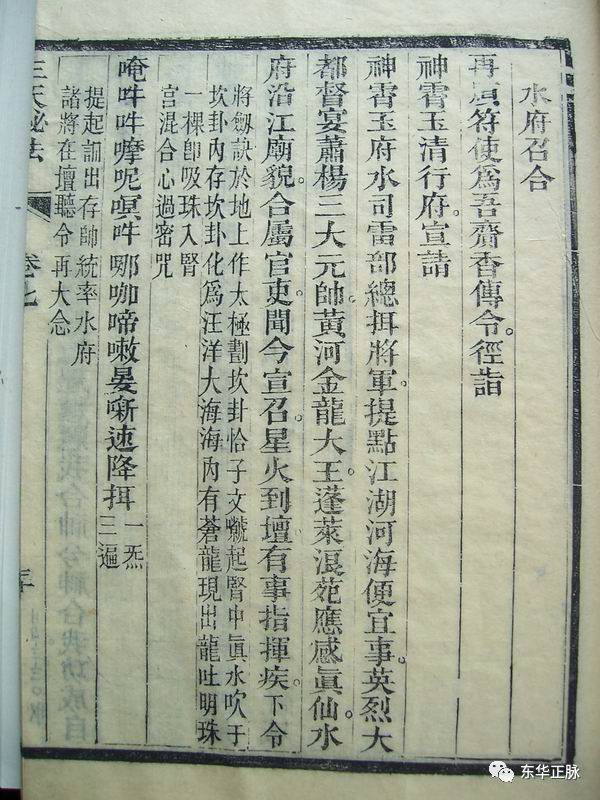 水府召合
再煩符使為吾齎香傳令。徑詣
神霄玉清行府。宣請
神霄玉府水司雷部總抇將軍。提點江湖河海便宜事英烈大
都督。宴蕭楊三大元帥。黃河金龍大王。蓬萊浪苑應感眞仙。水
府沿江廟貌。合屬官吏。聞今宣召。星火到壇。有事指揮。疾。下令
將劍訣於地上作太極劃坎卦恰子文 起腎中眞水吹于
坎卦內存坎卦化為汪洋大海海內有蒼龍現出龍吐明珠
一棵卽吸珠入腎
宮混合心過密咒
唵吽吽嚤呢嗔吽 㗝咖啼嗷晏噺速降抇 一炁
三遍
提起訕出存帥統率水府
諸將在壇聽令再大念
三天秘法
卷七
东华正脉